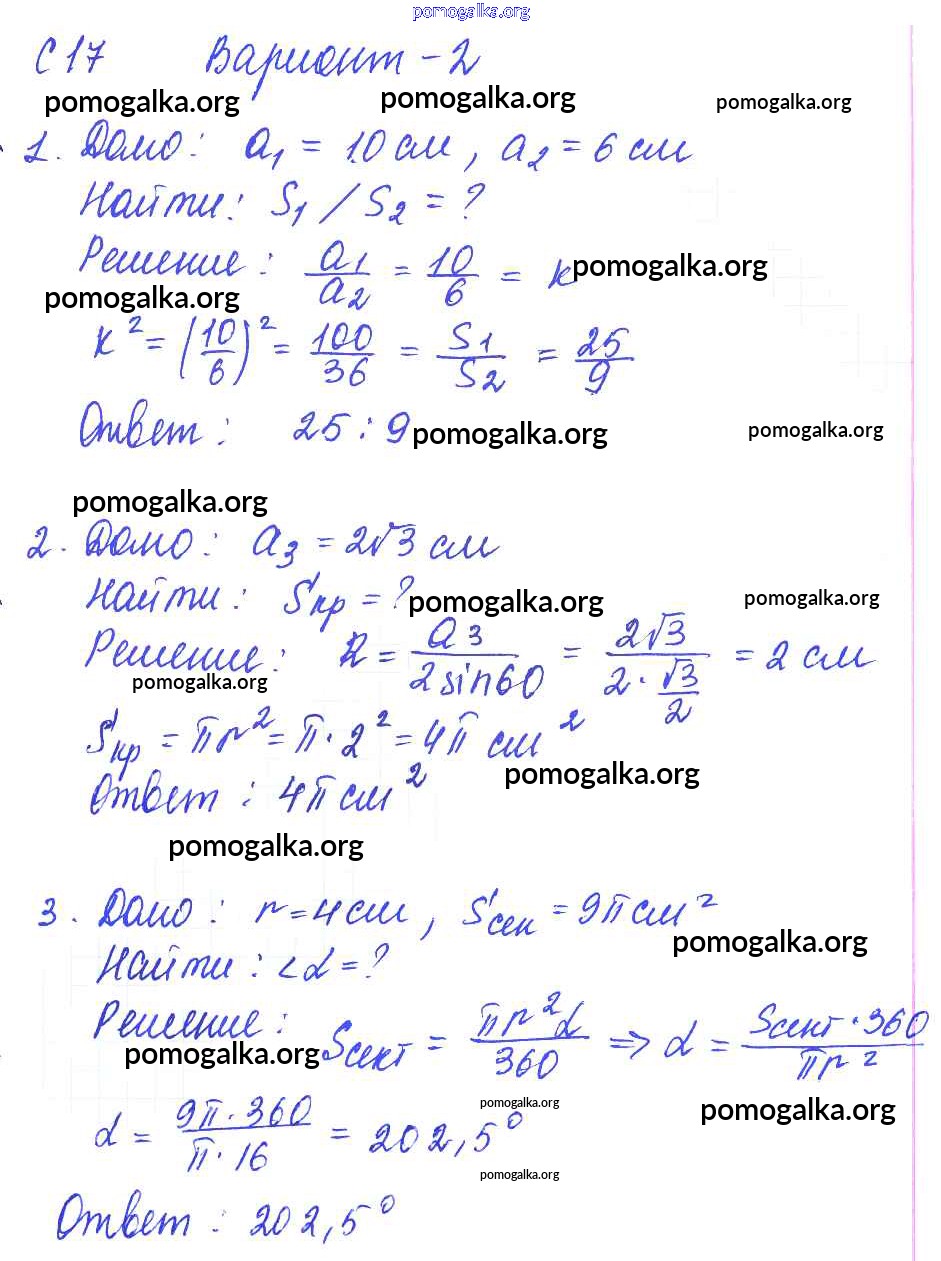 pomogalka.org
С 17 Вариант - 2
pomogalka.org pomogalka.org pomogalka.org
1. Дано: a₁ = 10 см, a₂ = 6 см
Найти: S₁ / S₂ = ?
Решение: a₁/a₂ = 10/6 = k pomogalka.org
pomogalka.org
k² = (10/6)² = 100/36 = S₁/S₂ = 25/9
Ответ: 25 : 9 pomogalka.org pomogalka.org
pomogalka.org
2. Дано: a₃ = 2√3 см
Найти: Sкр = ? pomogalka.org pomogalka.org
Решение: R = a₃/(2 sin 60) = 2√3/(2 · √3/2) = 2 см
pomogalka.org
Sкр = πr² = π · 2² = 4π см²
pomogalka.org
Ответ: 4π см²
pomogalka.org
3. Дано: r = 4 см, Sсек = 9π см²
pomogalka.org
Найти: <α = ?
Решение: Sсект = πr²α/360 => α = Sсект · 360/πr²
pomogalka.org
pomogalka.org pomogalka.org
α = 9π · 360/π · 16 = 202,5°
pomogalka.org
Ответ: 202,5°